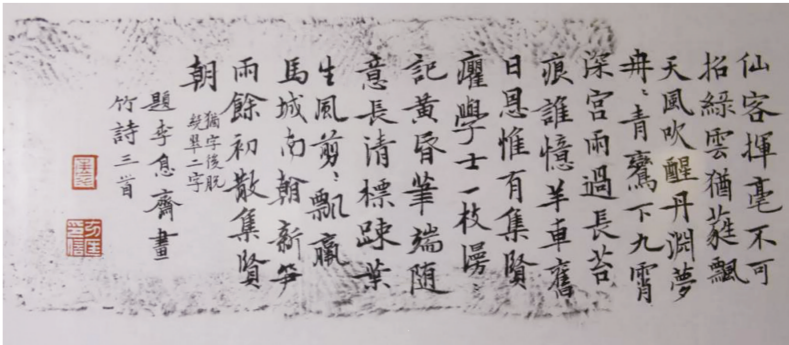 仙客揮毫不可
招綠雲猶蕤飄
天風吹醒丹淵夢
冉〻青鸞下九霄
深宮雨過長苔
痕誰憶羊車舊
日恩惟有集賢
癯學士一枝漫〻
記黃昏筆端隨
意長清標踈葉
生風剪〻瓢羸
馬城南翰新笋
雨餘初散集賢
朝
猶字後脫
翠二字
題李息齋畫
竹詩三首